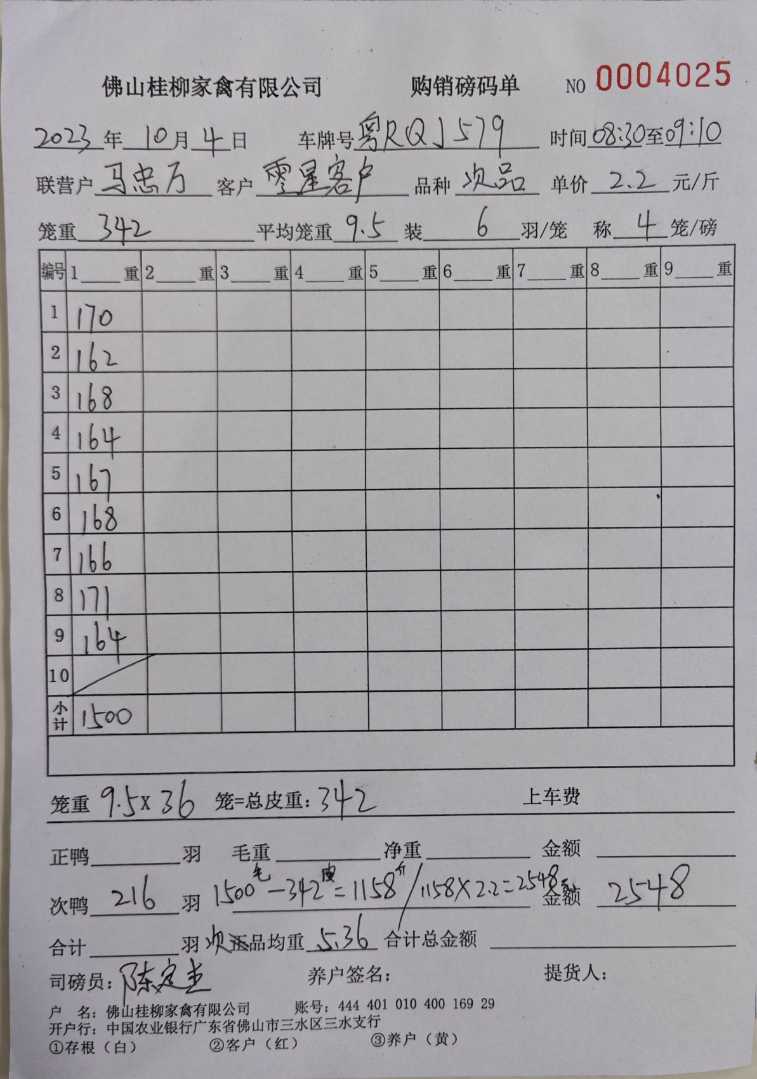 佛山桂柳家禽有限公司 购销磅码单 NO 0004025
2023 年 10 月 4 日 车牌号 粤RQJ579 时间 08:30 至 09:10
联营户 马忠万 客户 零星客户 品种 次品 单价 2.2 元/斤
笼重 342 平均笼重 9.5 装 6 羽/笼 称 4 笼/磅
编号 1 重 2 重 3 重 4 重 5 重 6 重 7 重 8 重 9 重
1 170
2 162
3 168
4 164
5 167
6 168
7 166
8 171
9 164
10
小计 1500
笼重 9.5×36 笼=总皮重: 342 上车费
正鸭 羽 毛重 净重 金额
次鸭 216 羽 1500毛-342皮=1158斤/1158×2.2=2548元 金额 2548
合计 羽 次品均重 5.36 合计总金额
司磅员: 陈定 养户签名: 提货人:
户 名: 佛山桂柳家禽有限公司 账号: 444 401 010 400 169 29
开户行: 中国农业银行广东省佛山市三水区三水支行
①存根（白） ②客户（红） ③养户（黄）